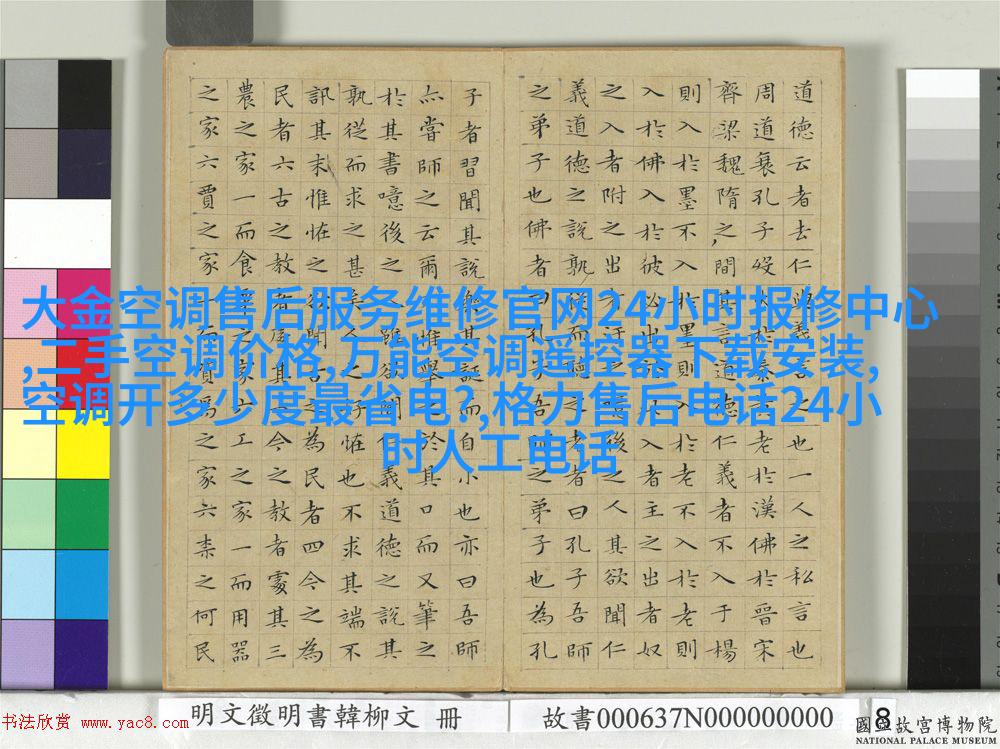 大金空调售后服务维修官网24小时报修中心
,二手空调价格,万能空调遥控器下载安装,
空调开多少度最省电?,格力售后电话24小
时人工电话
道德云者去仁義言之也一人之私言也
周道衰孔子歿於秦老於漢佛於晉宋
齊梁魏隋之間其言道德仁義者不入于楊
則入於墨不入於墨則入於老不入於老則
入於佛入於彼必出於入者主之出者奴
之入者附之出汙之後之人其欲聞仁
義道德之說孰從而聽之老者曰孔子吾師
之弟子也佛者曰孔子吾師之弟子也為孔
子者習聞其說樂其誕而自小也亦曰吾師
亦嘗師之云爾惟舉之於其口而又筆之
於其書噫後之人雖欲聞仁義道德之說其
孰從而求之甚矣人之怪也不求其端不
訊其末惟怪之欲聞古之為民者四今之為
民者六古之教者處其今之教者處其三
農之家一而食之家六工之家一而用器
之家六賈之家一而資焉之家六柰之何民
明文徵明書韓柳文 冊
故書000637N000000000
8
國立故宮博物院
NATIONAL PALACE MUSEUM
书法欣赏 www.yac8.com